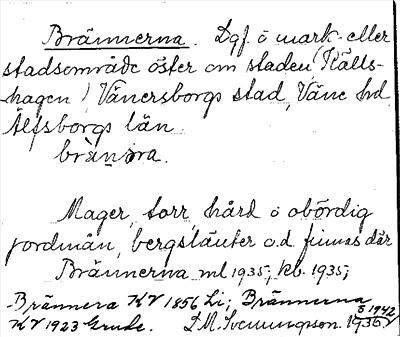 Brännerna. Lgf. å mark- eller
stadsområde öster om staden (Källs-
hagen) Vänersborgs stad, Väne hd
Älfsborgs län.
brän̄ɔra.
Mager, torr, hård o obördig
jordmån, bergsläuter o.d. finnas där
Brännerna ml 1935; kb. 1935;
Brännera KV 1856 Li; Brännerna
KV 1923 Grude. D.M. Svenungsson. 1935
S 1942